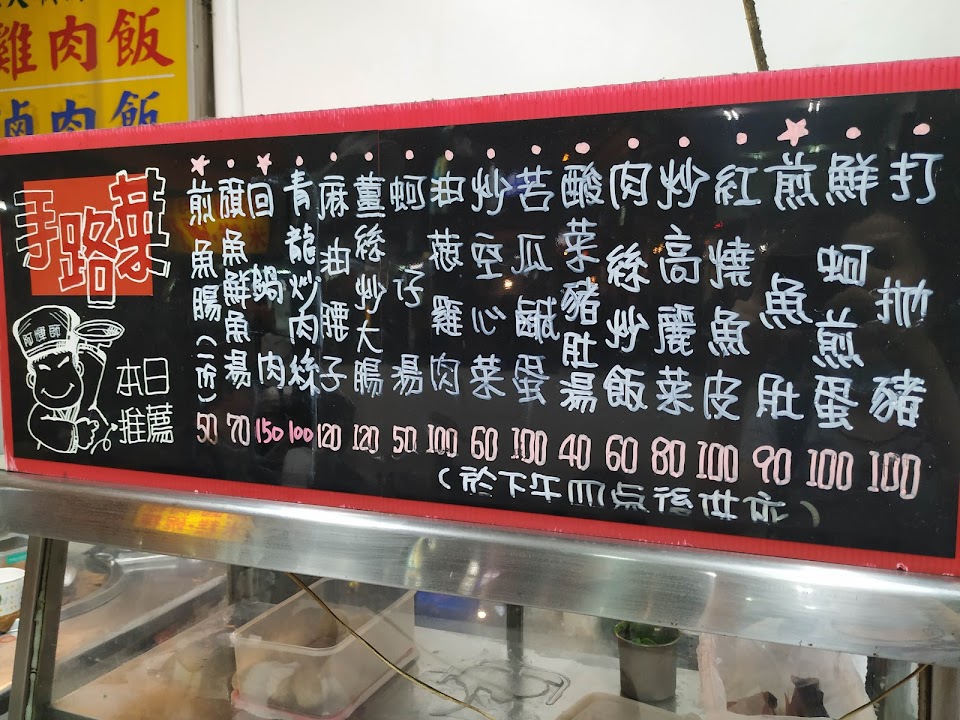 雞肉飯
滷肉飯
手路菜
本日
推薦
打拋豬 100
鮮蚵煎蛋 100
煎魚肚 90
紅燒魚皮 100
炒高麗菜 80
肉絲炒飯 60
酸菜豬肚湯 40
苦瓜鹹蛋 100
炒空心菜 60
油蔥雞肉 100
蚵仔湯 50
薑絲炒大腸 120
麻油腰子 120
青龍炒肉絲 100
回鍋肉 150
旗魚鮮魚湯 70
煎魚腸(一份) 50
(於下午四點後供應)